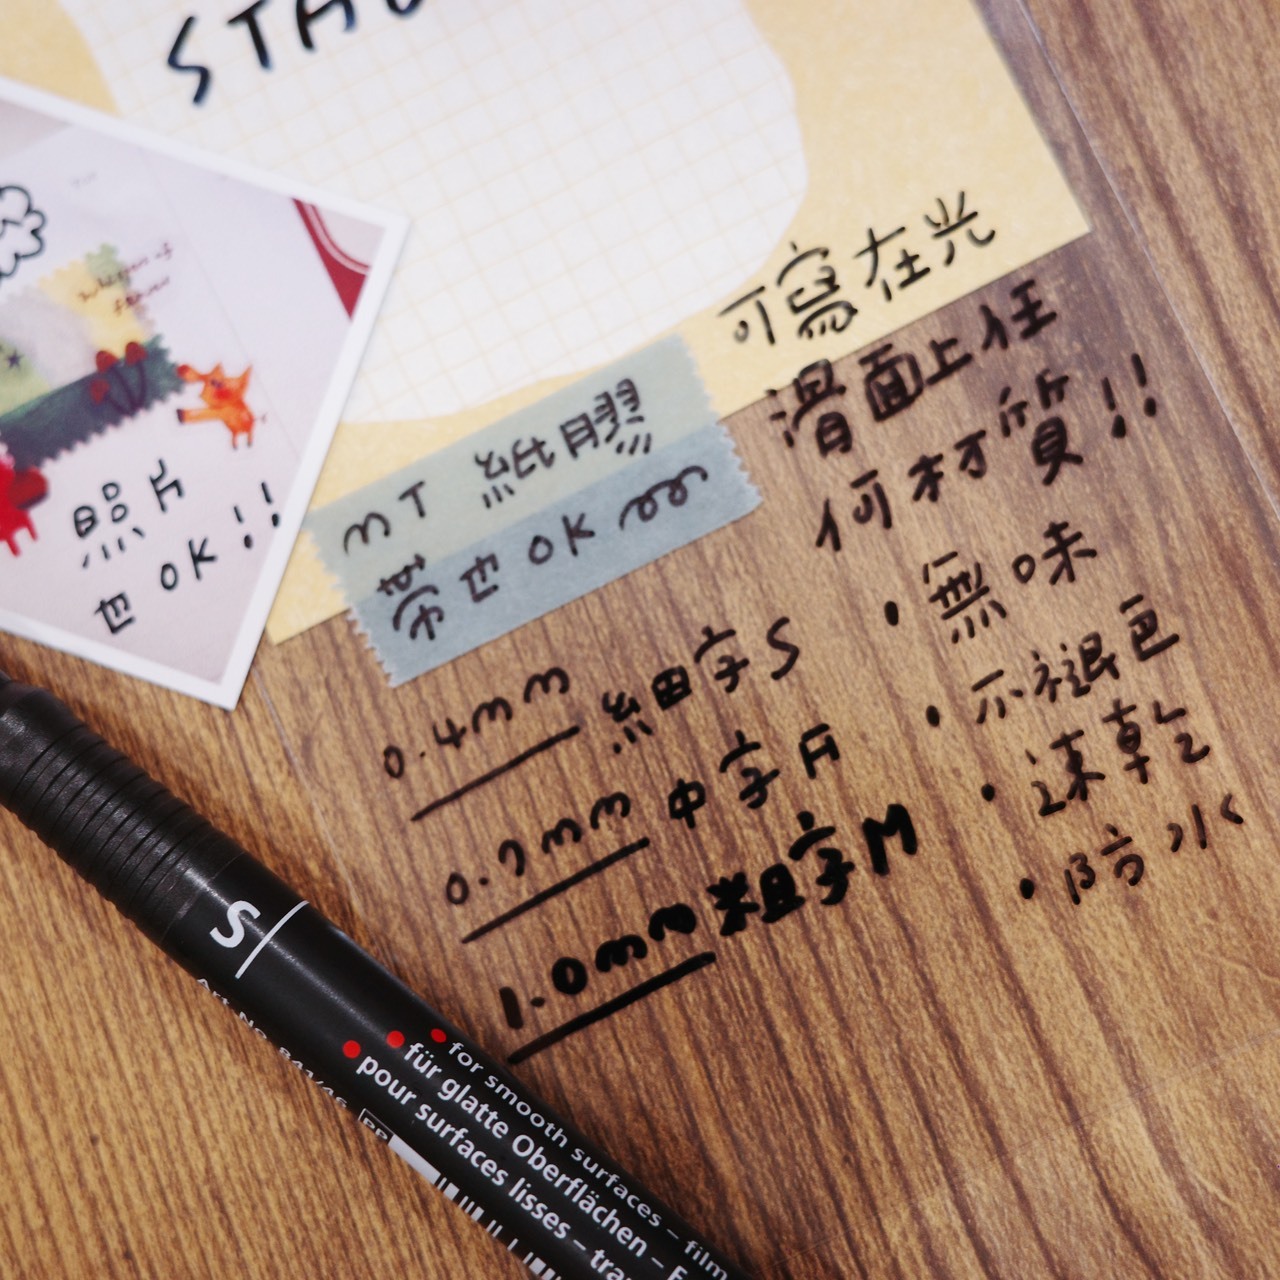 可寫在光
滑面上任
何材質!!
MT 紙膠
帶也OK
照片
也OK!!
0.4mm 細字S
0.7mm 中字F
1.0mm 粗字M
• 無味
• 不褪色
• 速乾
• 防水
S
for smooth surfaces – film
für glatte Oberflächen – F
pour surfaces lisses – tra